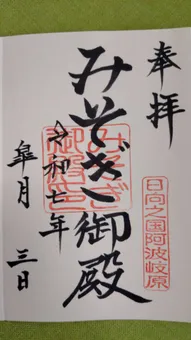 奉拝
日向之国阿波岐原
みそぎ御殿
みそぎ御殿印
令和七年
皐月 三日